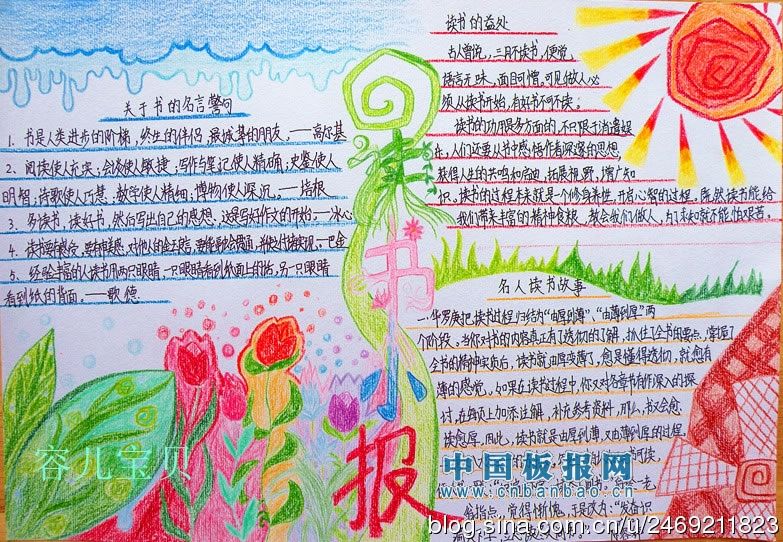 关于书的名言警句
1、书是人类进步的阶梯，终生的伴侣，最诚挚的朋友，——高尔基
2、阅读使人充实；会谈使人敏捷；写作与笔记使人精确；史鉴使人
明智；诗歌使人巧慧；数学使人精细；博物使人深沉。——培根
3、多读书，读好书，然后写出自己的感想，这是写好作文的开始。——冰心
4、读书
——巴金
5、经验丰富的人读书用两只眼睛，一只眼睛看到纸面上的话，另一只眼睛
看到纸的背面。——歌德
读书小报
读书的益处
古人曾说，三月不读书，便觉
语言无味，面目可憎。可见做人必
须从读书开始，有好书不可不读。
读书的功用是多方面的，不只限于消遣娱
乐，人们还要从书中感悟作者深邃的思想，
获得人生的共鸣和启迪，拓展视野，增广知
识。读书的过程本来就是一个修身养性，开启心智的过程。既然读书能给
我们带来丰富的精神食粮，教会我们做人，为了求知就不能怕艰苦。
名人读书故事
华罗庚把读书过程归结为“由厚到薄”、“由薄到厚”两
个阶段。当你对书的内容真正有了透彻的了解，抓住了全书的要点，掌握了
全书的精神实质后，读书就由厚变薄了，愈是懂得透彻，就愈有
薄的感觉。如果在读书过程中，你又对各章节作深入的探
讨，在每页上加添注解，补充参考资料，那么，书又会愈
读愈厚。因此，读书就是由厚到薄，又由薄到厚的过程。
觉得惭愧，于是改为：“发奋识
容儿宝贝
中国板报网
www.cnbanbao.cn
blog.sina.com.cn/u/2469211823